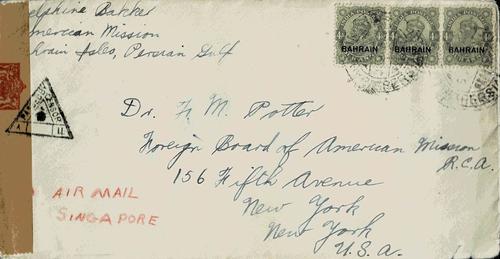 elphine Bakker
American Mission
hrain Isles, Persian Gulf
BAHRAIN
BAHRAIN
BAHRAIN
Dr. F. M. Potter
Foreign Board of American Mission
R.C.A.
156 Fifth Avenue
New York
New York
U.S.A.
AIR MAIL
SINGAPORE